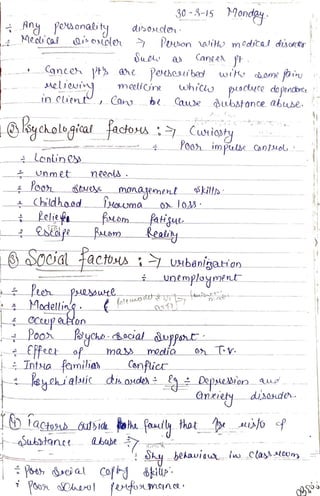 30-3-15 Monday.
÷ Any personality disorder.
÷ Medical disorder → Person with medical disorder
Such as Cancer pt.
• Cancer pt's are Perscribed with some pain
relieving medicine which produce dependence
in client, Can be Cause Substance abuse.
② Psychological factors :→ Curiosty
÷ Poor impulse control.
÷ Lonliness
÷ unmet needs.
÷ Poor stress management skills.
÷ Childhood Trauma or loss.
÷ Relief from fatigue.
÷ Escape from Reality
③ Social factors :→ urbanization
÷ unemployment
÷ Peer pressure
÷ Modelling.
÷ occupation
÷ Poor Psycho-social support.
÷ Effect of mass media or T.v.
÷ Intra familial Conflict
÷ Psychiatric disorder ÷ Eg ÷ Depression and
anxiety disorder.
factors outside the family that risk of
Substance abuse →
÷ Shy behaviour in classroom
÷ Poor social skills.
÷ Poor School performance.